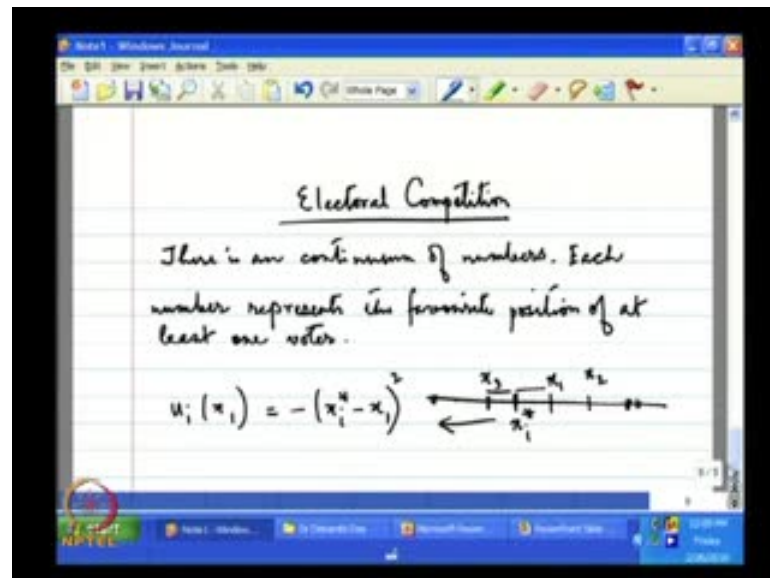 Note1 - Windows Journal
File Edit View Insert Actions Tools Help
Whole Page
Electoral Competition
There is an continuum of numbers. Each
number represents the favourite position of at
least one voter.
uᵢ(x₁) = -(xᵢ* - x₁)²
x₃ x₁ x₂
xᵢ*
start
Note1 - Windows...
NPTEL
Friday